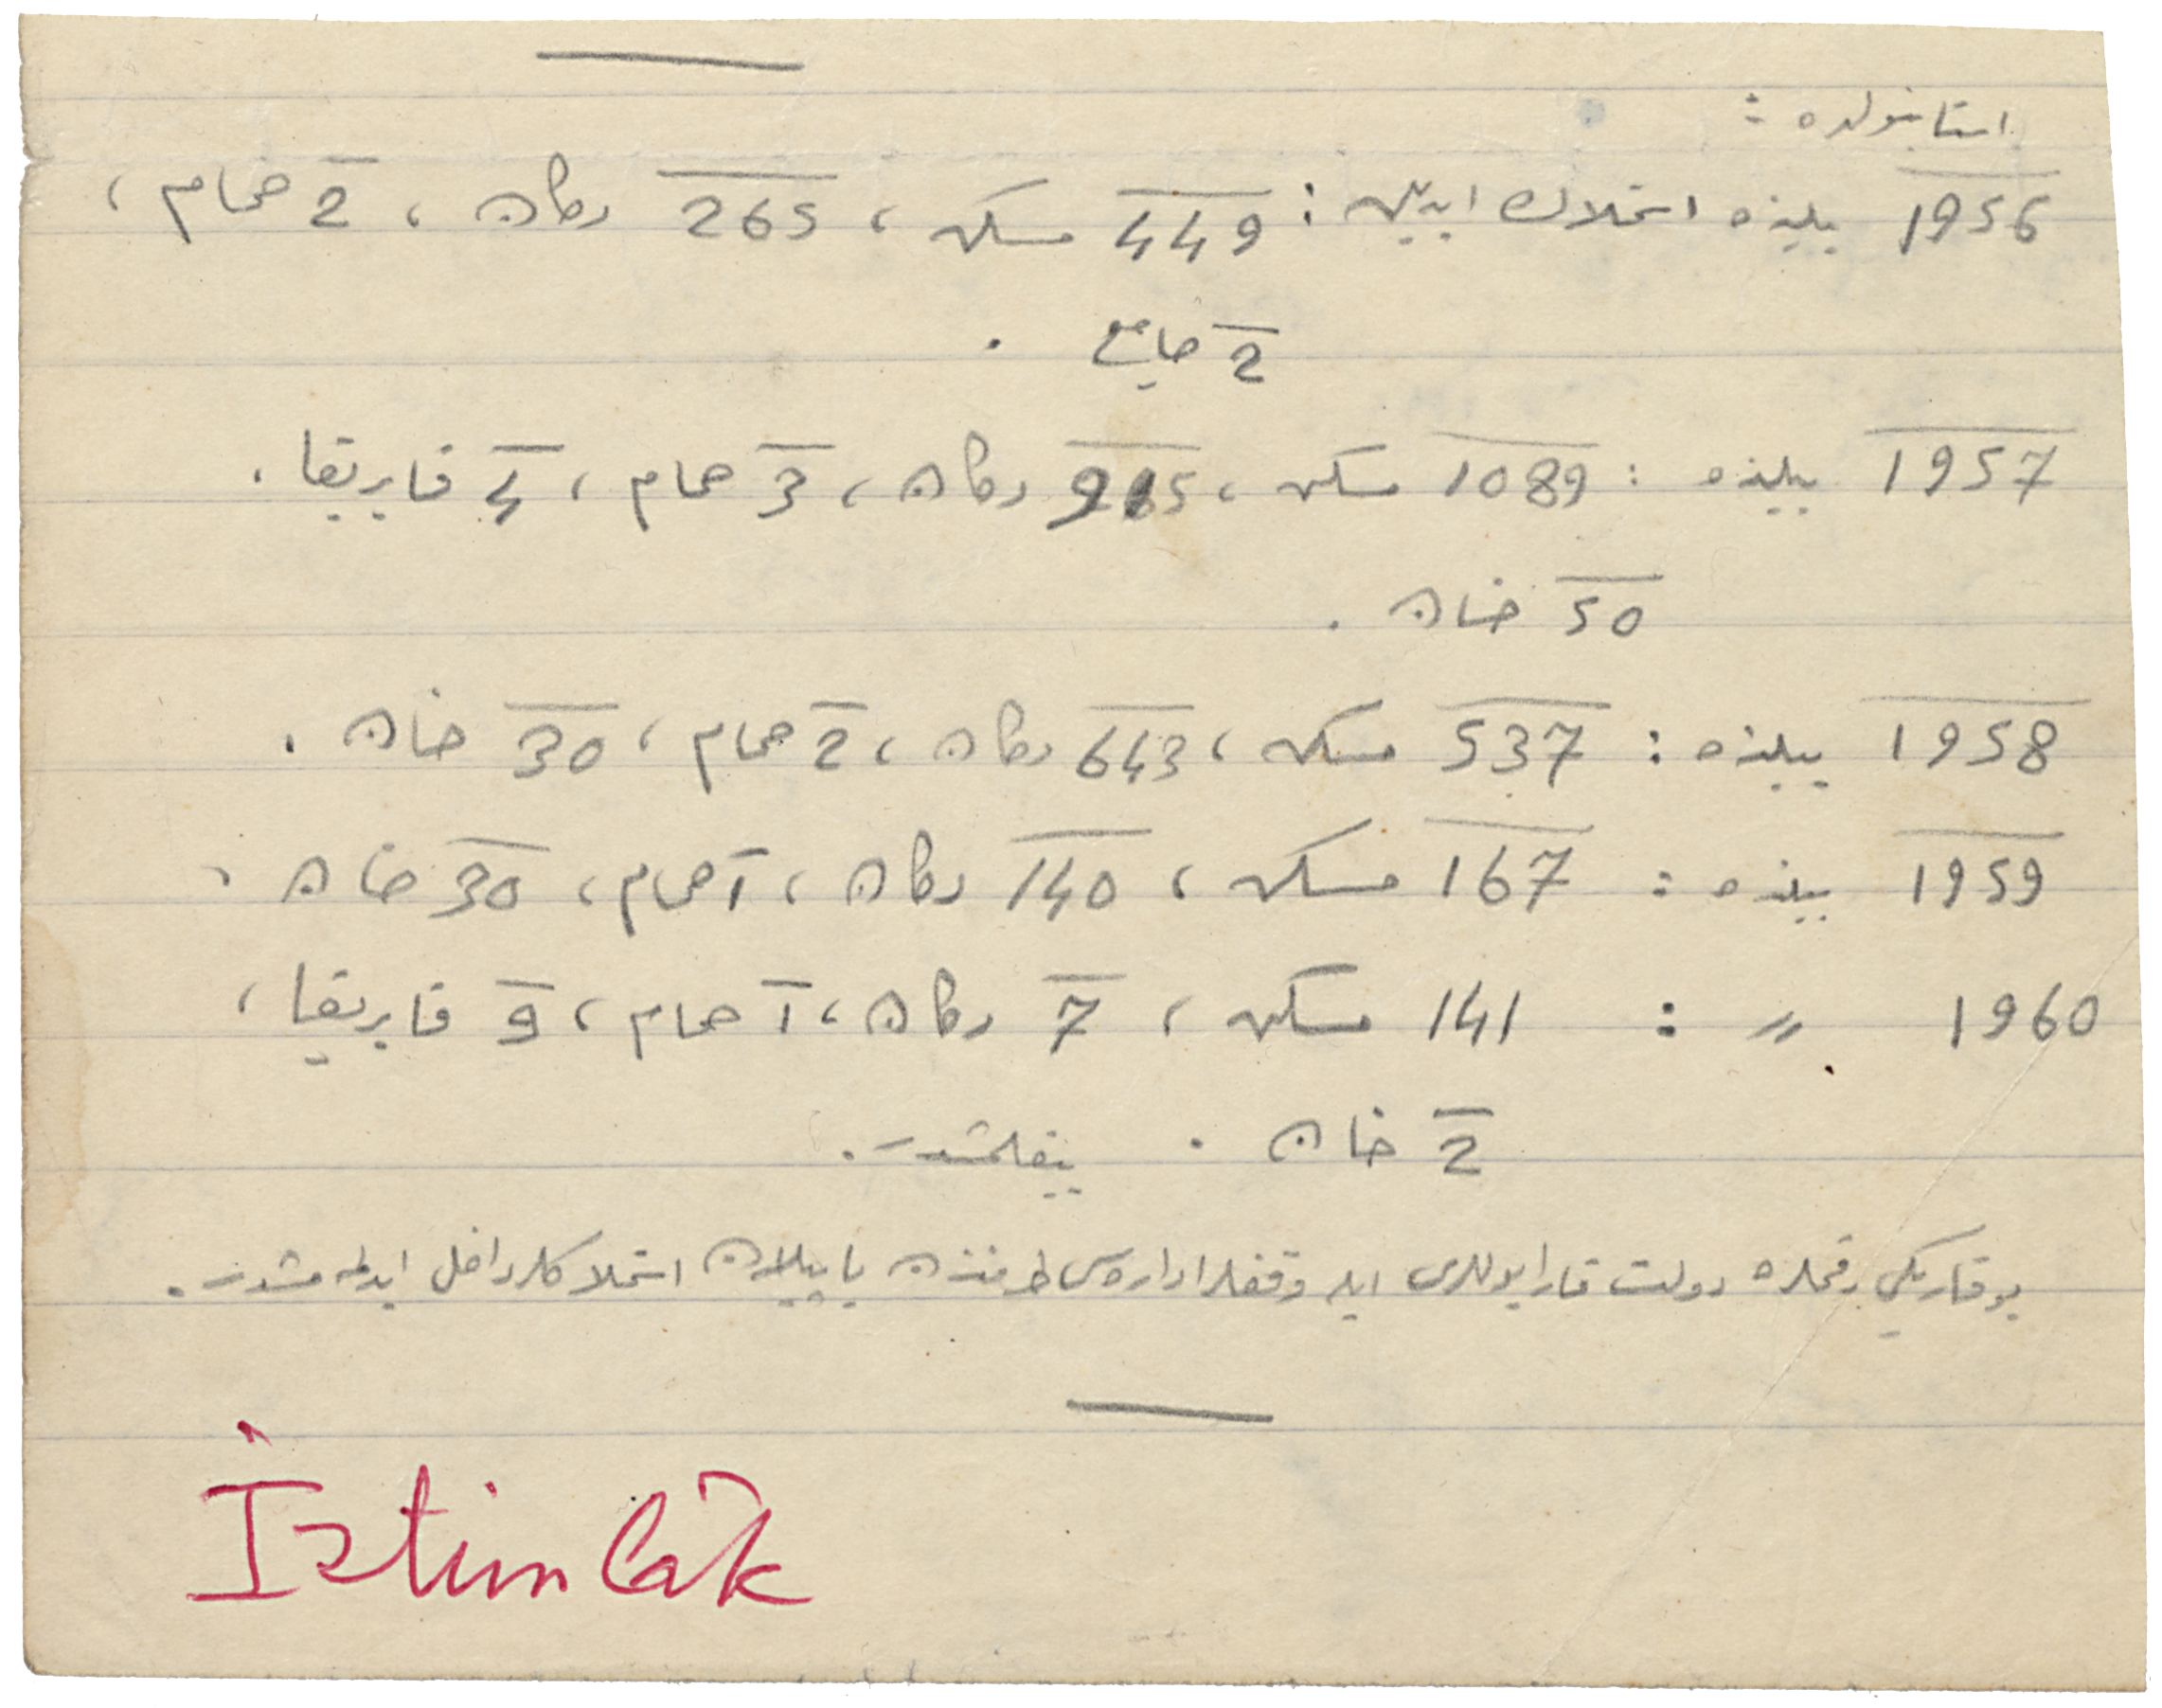 استانبولده :
1956 ييلنده استملاك ايديلن : 449 مسكن ، 265 دكان ، 2 حمام ،
2 جامع .
1957 ييلنده : 1089 مسكن ، 915 دكان ، 3 حمام ، 4 فابريقا .
50 خان .
1958 ييلنده : 537 مسكن ، 643 دكان ، 2 حمام ، 30 خان .
1959 ييلنده : 167 مسكن ، 140 دكان ، 1 حمام ، 30 خان .
1960 〃 : 141 مسكن ، 7 دكان ، 1 حمام ، 9 فابريقا ،
2 خان . ييقلمشدر .
يوقاريكى رقملره دولت قارايوللرى ايله وقفلر اداره‌سى طرفندن ياپيلان استملاكلر داخل ايدلمه‌مشدر .
İstimlâk